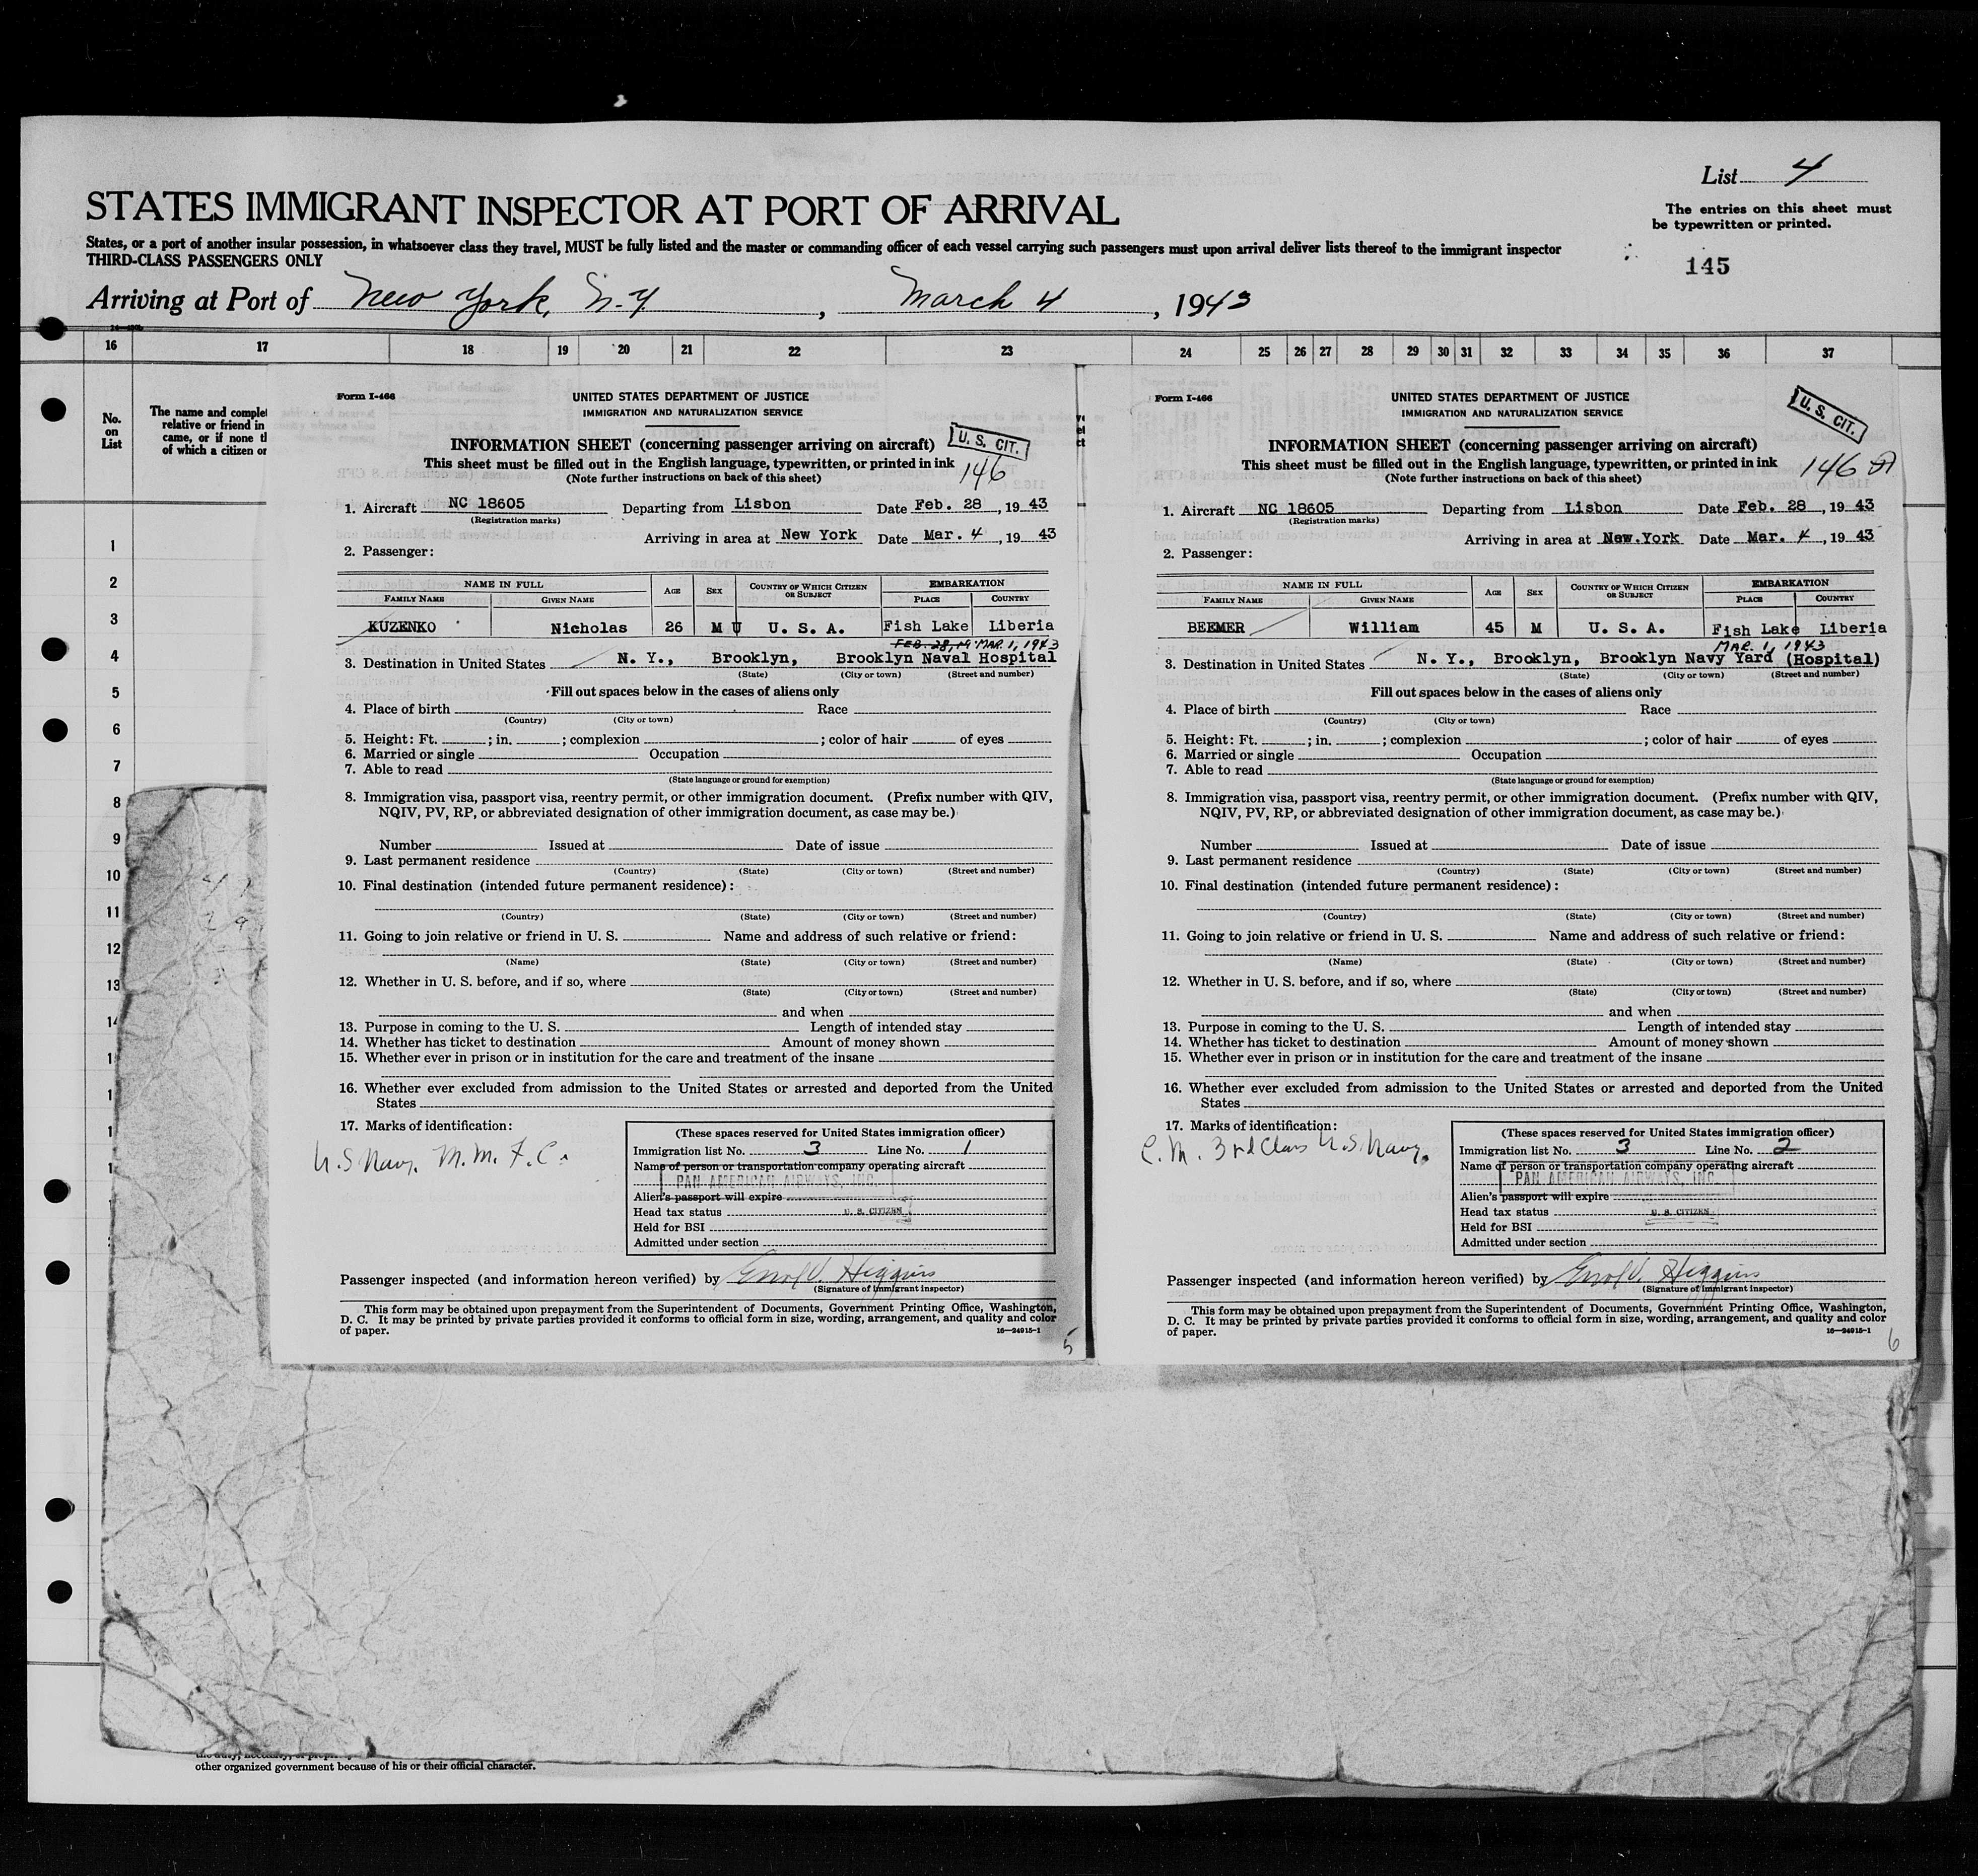 List 4
STATES IMMIGRANT INSPECTOR AT PORT OF ARRIVAL
The entries on this sheet must
be typewritten or printed.
States, or a port of another insular possession, in whatsoever class they travel, MUST be fully listed and the master or commanding officer of each vessel carrying such passengers must upon arrival deliver lists thereof to the immigrant inspector
THIRD-CLASS PASSENGERS ONLY
145
Arriving at Port of New York, N.Y , March 4 , 1943
16 17 18 19 20 21 22 23 24 25 26 27 28 29 30 31 32 33 34 35 36 37
No.
on
List
The name and complet
relative or friend in
came, or if none t
of which a citizen or
1
2
3
4
5
6
7
8
9
10
11
12
13
Form I-466
UNITED STATES DEPARTMENT OF JUSTICE
IMMIGRATION AND NATURALIZATION SERVICE
INFORMATION SHEET (concerning passenger arriving on aircraft)
U. S. CIT.
This sheet must be filled out in the English language, typewritten, or printed in ink
146
(Note further instructions on back of this sheet)
1. Aircraft NC 18605 Departing from Lisbon Date Feb. 28, 19 43
(Registration marks)
Arriving in area at New York Date Mar. 4, 19 43
2. Passenger:
NAME IN FULL AGE SEX COUNTRY OF WHICH CITIZEN OR SUBJECT EMBARKATION
FAMILY NAME GIVEN NAME PLACE COUNTRY
KUZENKO Nicholas 26 M U U. S. A. Fish Lake Liberia
FEB. 28, MAR. 1, 1943
3. Destination in United States N. Y., Brooklyn, Brooklyn Naval Hospital
(State) (City or town) (Street and number)
Fill out spaces below in the cases of aliens only
4. Place of birth Race
(Country) (City or town)
5. Height: Ft. ; in. ; complexion ; color of hair of eyes
6. Married or single Occupation
7. Able to read
(State language or ground for exemption)
8. Immigration visa, passport visa, reentry permit, or other immigration document. (Prefix number with QIV,
NQIV, PV, RP, or abbreviated designation of other immigration document, as case may be.)
Number Issued at Date of issue
9. Last permanent residence
(Country) (State) (City or town) (Street and number)
10. Final destination (intended future permanent residence):
(Country) (State) (City or town) (Street and number)
11. Going to join relative or friend in U. S. Name and address of such relative or friend:
(Name) (State) (City or town) (Street and number)
12. Whether in U. S. before, and if so, where
(State) (City or town) (Street and number)
and when
13. Purpose in coming to the U. S. Length of intended stay
14. Whether has ticket to destination Amount of money shown
15. Whether ever in prison or in institution for the care and treatment of the insane
16. Whether ever excluded from admission to the United States or arrested and deported from the United
States
17. Marks of identification:
U.S Navy. M.M. F.C.
(These spaces reserved for United States immigration officer)
Immigration list No. 3 Line No. 1
Name of person or transportation company operating aircraft
PAN AMERICAN AIRWAYS, INC.
Alien's passport will expire
Head tax status U. S. CITIZEN
Held for BSI
Admitted under section
Passenger inspected (and information hereon verified) by Errol V. Higgins
(Signature of immigrant inspector)
This form may be obtained upon prepayment from the Superintendent of Documents, Government Printing Office, Washington,
D. C. It may be printed by private parties provided it conforms to official form in size, wording, arrangement, and quality and color
of paper. 16—24915-1
5
Form I-466
UNITED STATES DEPARTMENT OF JUSTICE
IMMIGRATION AND NATURALIZATION SERVICE
U. S. CIT.
INFORMATION SHEET (concerning passenger arriving on aircraft)
This sheet must be filled out in the English language, typewritten, or printed in ink
146
(Note further instructions on back of this sheet)
1. Aircraft NC 18605 Departing from Lisbon Date Feb. 28, 19 43
(Registration marks)
Arriving in area at New York Date Mar. 4, 19 43
2. Passenger:
NAME IN FULL AGE SEX COUNTRY OF WHICH CITIZEN OR SUBJECT EMBARKATION
FAMILY NAME GIVEN NAME PLACE COUNTRY
BEEMER William 45 M U. S. A. Fish Lake Liberia
MAR. 1, 1943
3. Destination in United States N. Y., Brooklyn, Brooklyn Navy Yard (Hospital)
(State) (City or town) (Street and number)
Fill out spaces below in the cases of aliens only
4. Place of birth Race
(Country) (City or town)
5. Height: Ft. ; in. ; complexion ; color of hair of eyes
6. Married or single Occupation
7. Able to read
(State language or ground for exemption)
8. Immigration visa, passport visa, reentry permit, or other immigration document. (Prefix number with QIV,
NQIV, PV, RP, or abbreviated designation of other immigration document, as case may be.)
Number Issued at Date of issue
9. Last permanent residence
(Country) (State) (City or town) (Street and number)
10. Final destination (intended future permanent residence):
(Country) (State) (City or town) (Street and number)
11. Going to join relative or friend in U. S. Name and address of such relative or friend:
(Name) (State) (City or town) (Street and number)
12. Whether in U. S. before, and if so, where
(State) (City or town) (Street and number)
and when
13. Purpose in coming to the U. S. Length of intended stay
14. Whether has ticket to destination Amount of money shown
15. Whether ever in prison or in institution for the care and treatment of the insane
16. Whether ever excluded from admission to the United States or arrested and deported from the United
States
17. Marks of identification:
C.M. 3rd Class U.S. Navy.
(These spaces reserved for United States immigration officer)
Immigration list No. 3 Line No. 2
Name of person or transportation company operating aircraft
PAN AMERICAN AIRWAYS, INC.
Alien's passport will expire
Head tax status U. S. CITIZEN
Held for BSI
Admitted under section
Passenger inspected (and information hereon verified) by Errol V. Higgins
(Signature of immigrant inspector)
This form may be obtained upon prepayment from the Superintendent of Documents, Government Printing Office, Washington,
D. C. It may be printed by private parties provided it conforms to official form in size, wording, arrangement, and quality and color
of paper. 16—24915-1
6
other organized government because of his or their official character.